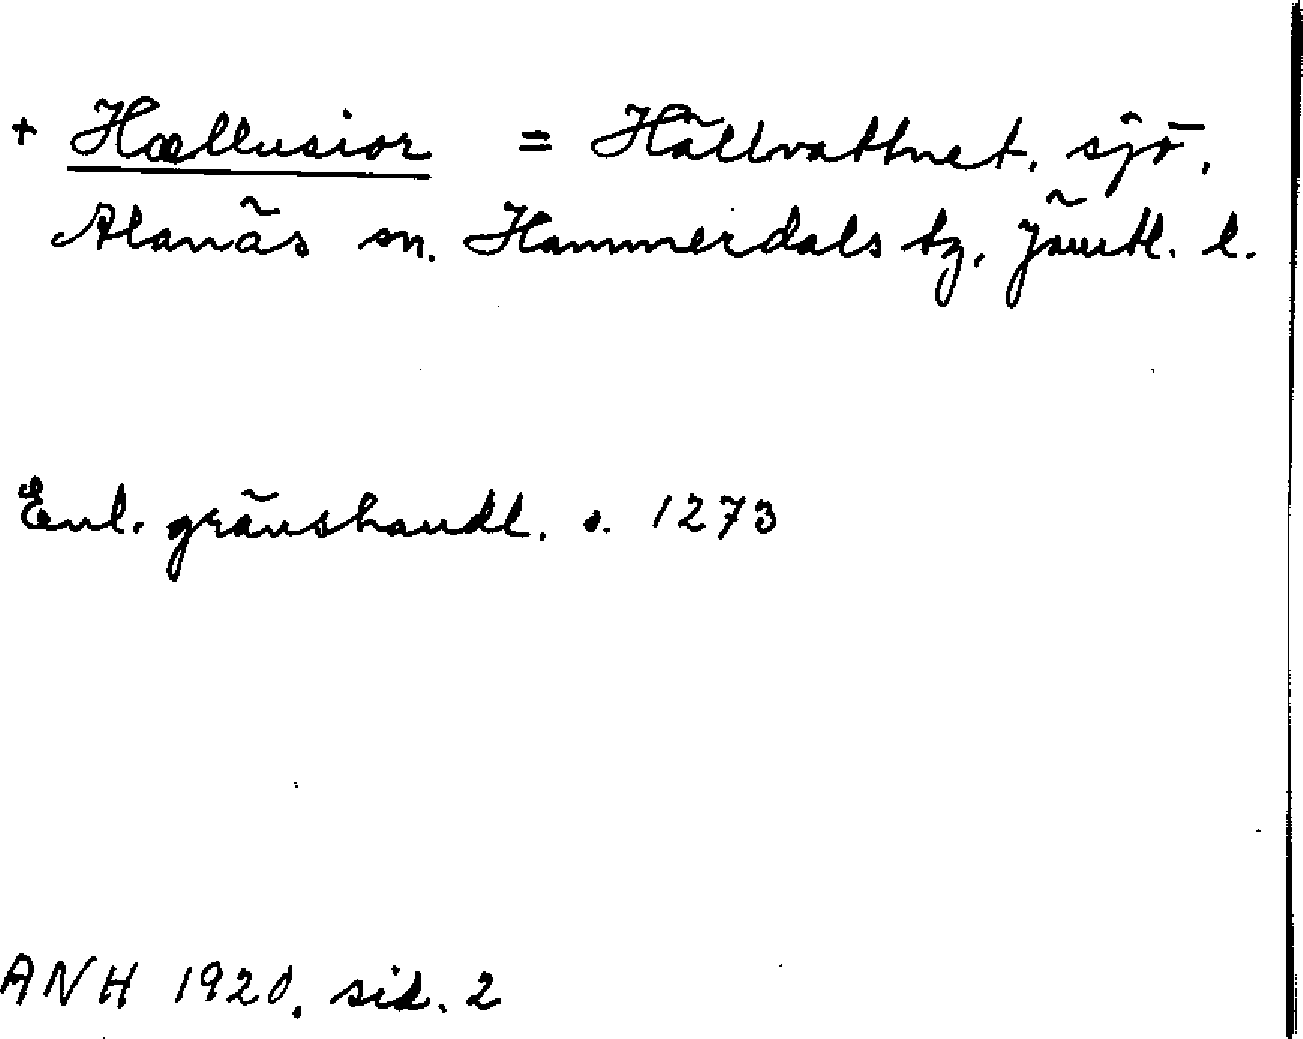 + Hællusior = Hällvattnet, sjö,
Alanäs sn. Hammerdals tg, Jämtl. l.
Enl. gränshandl. o. 1273
ANH 1920, sid. 2